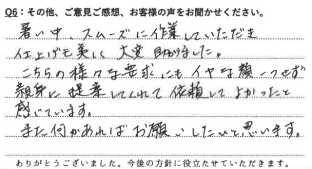 Q6：その他、ご意見ご感想、お客様の声をお聞かせください。
暑い中、スムーズに作業していただき
仕上げも美しく大変助かりました。
こちらの様々な要求にもイヤな顔一つせず
親身に提案してくれて依頼してよかったと
感じています。
また何かあればお願いしたいと思います。
ありがとうございました。今後の方針に役立たせていただきます。